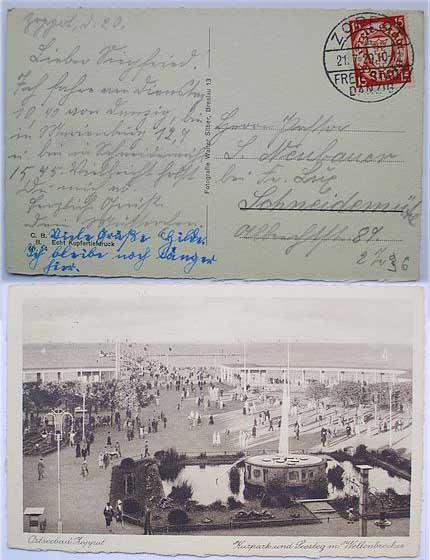 Zoppot, d. 20.
Lieber Siegfried!
Ich fahre am Dienstag
10,49 von Danzig, bin
in Marienburg 12,4
u. bin in Schneidemühl
15,45. Vielleicht holst
Du mich ab.
Herzlich Grüßt
C. B.
B. Echt Kupfertiefdruck
Nr. 54
Viele Grüße Hilde.
Ich bleibe noch länger
hier.
Fotografie Walter Silber, Breslau 13
ZOPPOT
21. 7. 29.10-
FREIE STADT
DANZIG
15
15
Herrn Pastor
S. Neubauer
bei Fr. Lüc
Schneidemühl
Albrechtstr. 87
Ostseebad Zoppot
Kurpark und Seesteg m. Wellenbrecher